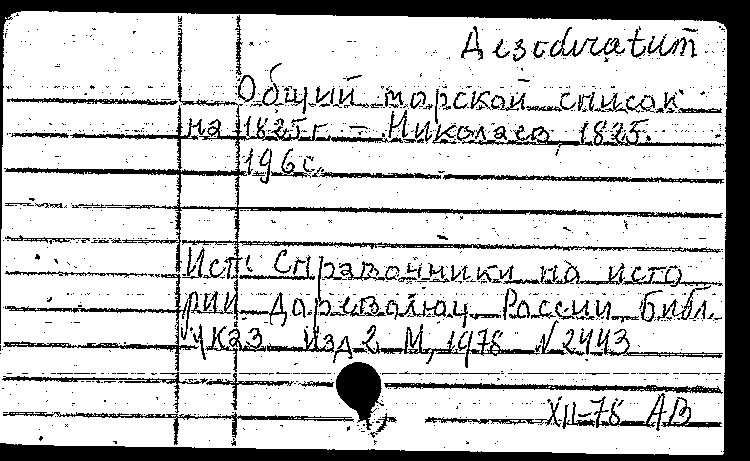 Desideratum
Общий морской список
на 1825 г. – Николаев, 1825.
196 с.
Ист: Справочники на исто
рии дореволюц. России. Библ.
указ. Изд 2 М, 1978 №2443
XII-78 АВ